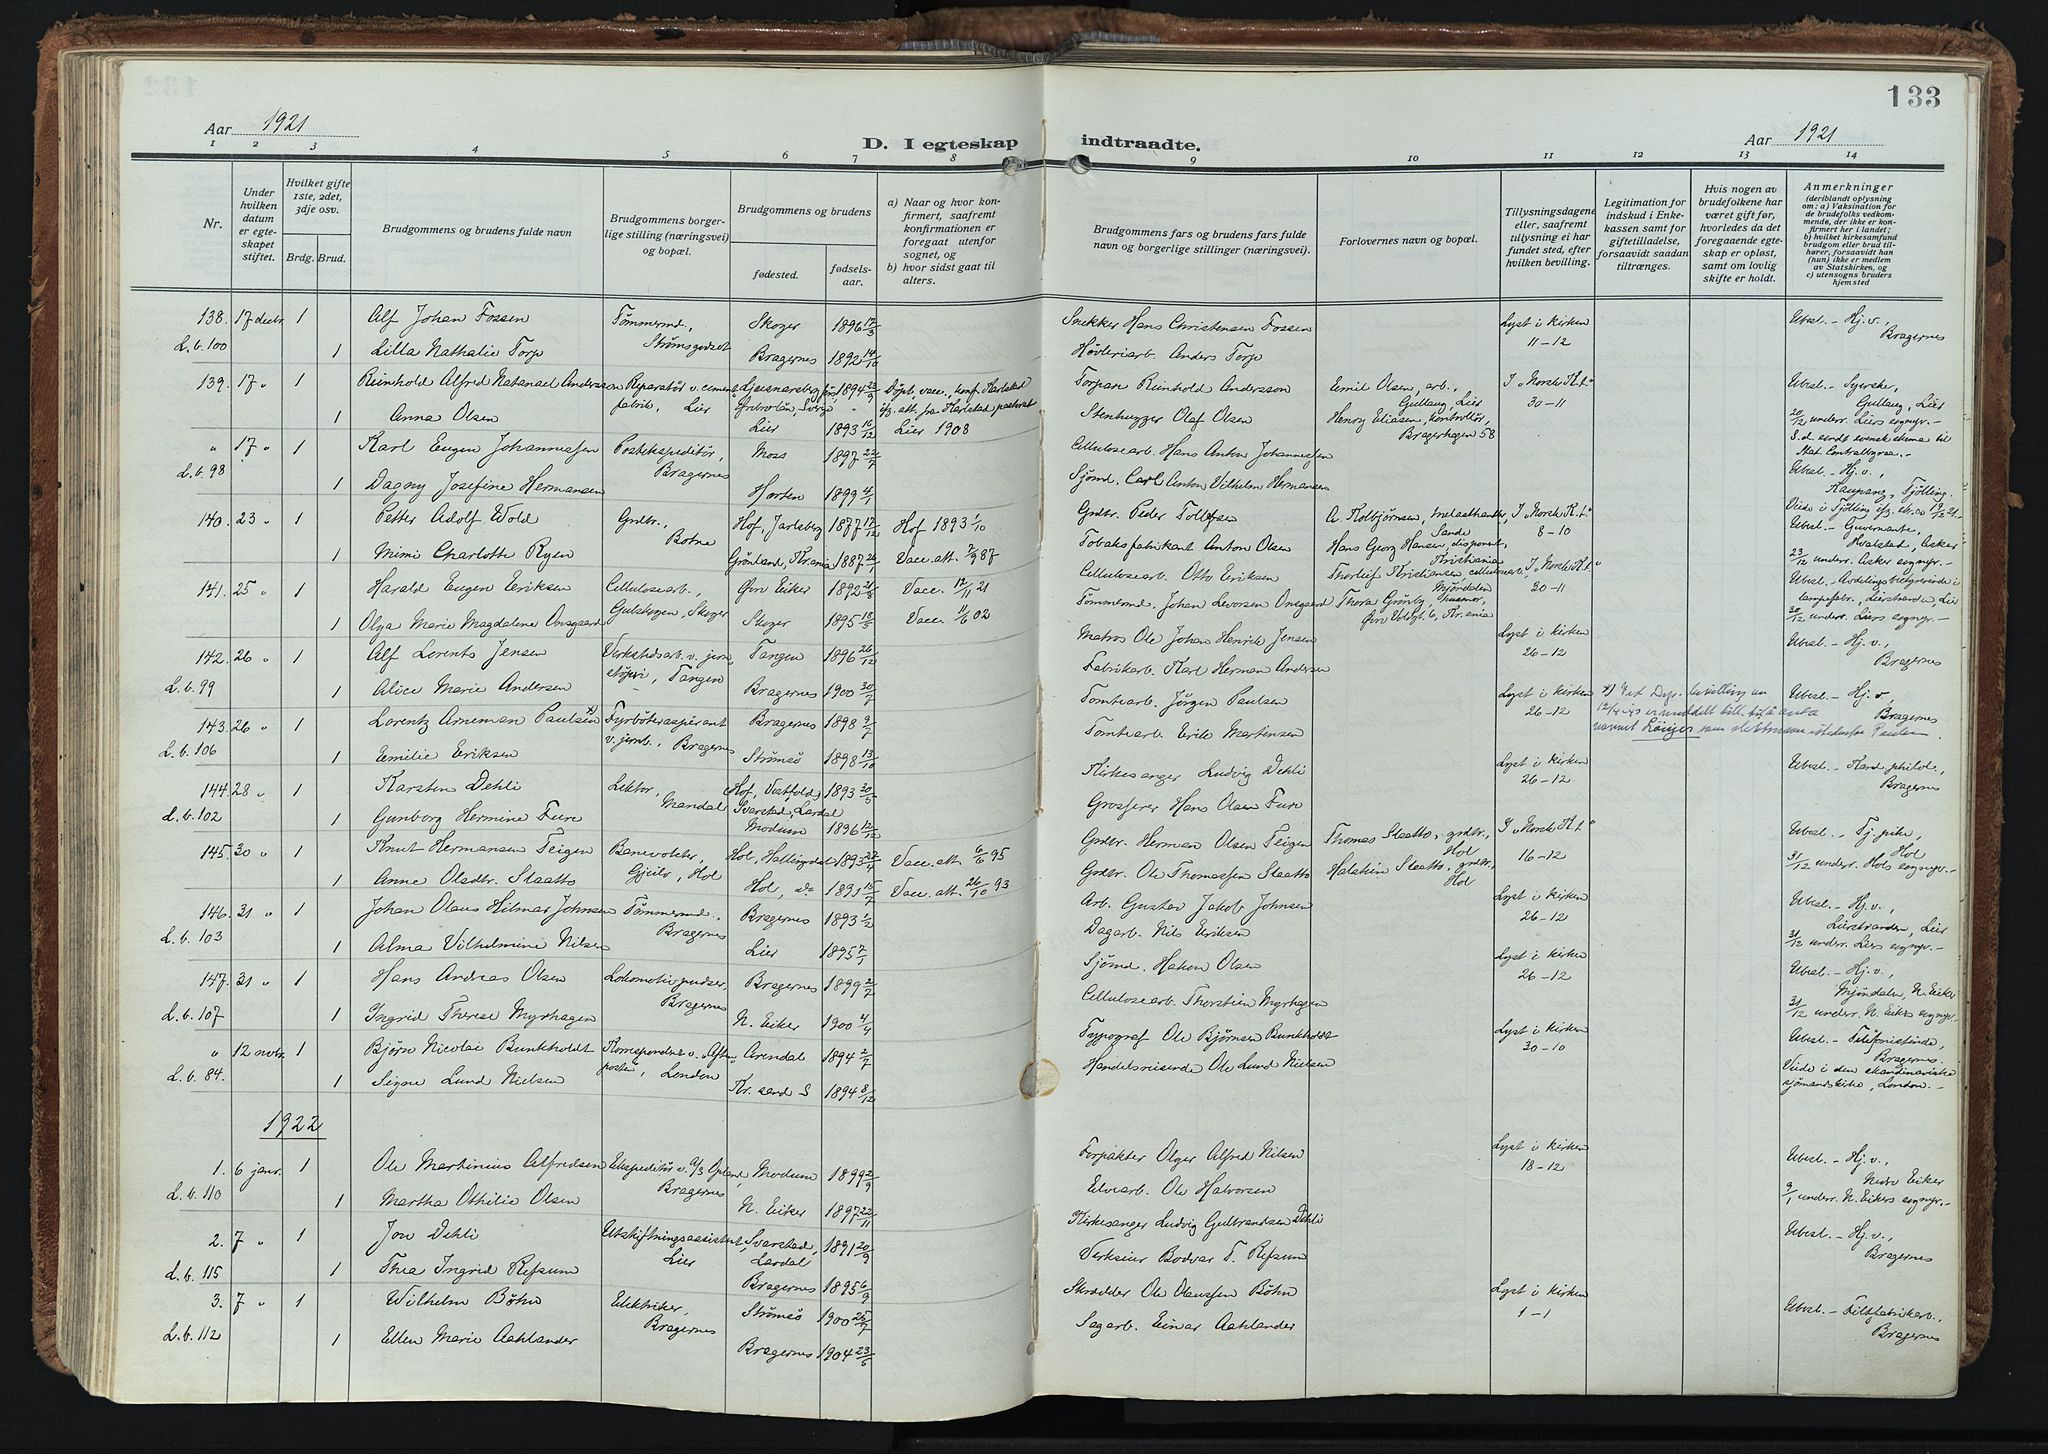 133
Aar 1921
D. I egteskap indtraadte.
Aar 1921
1 2 3 4 5 6 7 8 9 10 11 12 13 14
Nr.
Under hvilken datum er egteskapet stiftet.
Hvilket gifte 1ste, 2det, 3dje osv.
Brdg. Brud.
Brudgommens og brudens fulde navn
Brudgommens borgerlige stilling (næringsvei) og bopæl.
Brudgommens og brudens
fødested. fødselsaar.
a) Naar og hvor konfirmert, saafremt konfirmationen er foregaat utenfor sognet, og
b) hvor sidst gaat til alters.
Brudgommens fars og brudens fars fulde navn og borgerlige stillinger (næringsvei).
Forlovernes navn og bopæl.
Tillysningsdagene eller, saafremt tillysning ei har fundet sted, efter hvilken bevilling.
Legitimation for indskud i Enkekassen samt for giftetilladelse, forsaavidt saadan tiltrænges.
Hvis nogen av brudefolkene har været gift før, hvorledes da det foregaaende egteskap er opløst, samt om lovlig skifte er holdt.
Anmerkninger (deriblandt oplysning om: a) Vaksination for de brudefolks vedkommende, der ikke er konfirmert her i landet; b) hvilket kirkesamfund brudgom eller brud tilhører, forsaavidt han (hun) ikke er medlem av Statskirken, og c) utensogns bruders hjemsted
138. 17 decbr. 1 Alf Johan Fossen Tømmermd., Strømsgodset Skoger 1896 17/3 Snekker Hans Christensen Fossen Lyst i kirken 11-12 Ubesl. - Hj.v., Bragernes
L.b. 100 1 Lilla Nathalie Torp Bragernes 1892 14/10 Høvleriarb. Anders Torp
139. 17 " 1 Reinhold Alfred Natanael Andersson Reparatør v. cementfabrik, Lier 1894 23/9 Torpare Reinhold Andersson Emil Olsen, arb., Gullaug, Lier I "Norsk K.t." 30-11 Ubesl. - Syerske, Gullaug, Lier
1 Anna Olsen Lier 1893 16/12 Lier 1908 Stenhugger Olaf Olsen Henry Eliasen, kontrollør, Bragerhagen 58 20/12 underr. Liers sognepr. -
" 17 " 1 Karl Eugen Johannessen Postekspeditør, Bragernes Moss 1897 22/7 Cellulosearb. Hans Anton Johannessen Ubesl. - Hj.v., Kaupang, Tjølling.
L.b. 98 1 Dagny Josefine Hermansen Horten 1899 4/1 Sjømd. Carl Anton Vilhelm Hermansen
140. 23 " 1 Petter Adolf Wold Grdbr., Botne Hof, Jarlsberg 1877 17/12 Hof 1893 1/10 Grdbr. Peder Tollefsen A. Kolbjørnsen, melaathandler, Sande I "Norsk K.t." 8-10 Ubesl. - Guvernante, Hvalstad, Asker
1 Mimi Charlotte Ryen Grønland, Kr.ania 1887 Vacc. att. 7/9 87 Tobaksfabrikant Anton Olsen Hans Georg Hansen, disponent, Kristiania 23/12 underr. Asker sognepr. -
141. 25 " 1 Harald Eugen Eriksen Cellulosearb., Gulskogen, Skoger Øvre Eiker 1892 Vacc. 17/11 21 Cellulosearb. Otto Eriksen Thorleif Kristiansen, cellulosearb., Mjøndalen I "Norsk K.t." 30-11 Ubesl. - Avdelingsbetjerinde i lampefabr., Lierstranden, Lier
1 Olga Marie Magdalene Onsgaard Skoger 1895 Vacc. 11/6 02 Tømmermd. Johan Levorsen Onsgaard Thora Grønby, husmor, Øvre Voldgt. 6, Kr.ania 30/12 underr. Liers sognepr. -
142. 26 " 1 Alf Lorents Jensen Verkstedsarb. v. jernstøperi, Tangen Tangen 1896 26/12 Matros Ole Johan Henrik Jensen Lyst i kirken 26-12 Ubesl. - Hj.v., Bragernes
L.b. 99 1 Alice Marie Andersen Bragernes 1900 30/7 Fabrikarb. Karl Herman Andersen
143. 26 " 1 Lorentz Arneman Paulsen x) Fyrbøteraspirant v. jernb., Bragernes Bragernes 1898 9/7 Tomtearb. Jørgen Paulsen Lyst i kirken 26-12 Ubesl. - Hj.v. Bragernes
L.b. 106 1 Emilie Eriksen Strømsø 1898 13/10 Tomtearb. Erik Martensen
144. 28 " 1 Karsten Dehli Lektor, Mandal Hof, Vestfold 1893 30/5 Kirkesanger Ludvig Dehli Lyst i kirken 26-12 Ubesl. - Kand. philol., Bragernes
L.b. 102 1 Gunborg Hermine Fure Modum 1896 12/12 Grosserer Hans Olsen Fure
145. 30 " 1 Knut Hermansen Teigen Banevokter, Gjeilo, Hol Hol, Hallingdal 1893 27/4 Vacc. att. 6/6 95 Grdbr. Herman Olsen Teigen Thomas Slaatto, grdbr., Hol I "Norsk K.t." 16-12 Ubesl. - Tj.pike, Hol
1 Anne Olsdtr. Slaatto Hol, do 1891 15/7 Vacc. att. 26/10 93 Grdbr. Ole Thomassen Slaatto Halstein Slaatto, grdbr., Hol 31/12 underr. Hols sognepr. -
146. 31 " 1 Johan Olaus Hilmar Johnsen Tømmermd., Bragernes Bragernes 1893 1/2 Arb. Gustav Jakob Johnsen Lyst i kirken 26-12 Ubesl. - Hj.v., Lierstranden, Lier
L.b. 103 1 Alma Vilhelmine Nilsen Lier 1895 7/1 Dagarb. Nils Eriksen 31/12 underr. Liers sognepr. -
147. 31 " 1 Hans Andreas Olsen Lokomotivpudser, Bragernes Bragernes 1899 2/7 Sjømd. Hakon Olsen Lyst i kirken 26-12 Ubesl. - Hj.v., Mjøndalen, N. Eiker
L.b. 107 1 Ingrid Therese Myrhagen N. Eiker 1900 4/4 Cellulosearb. Thorstein Myrhagen 31/12 underr. N. Eikers sognepr. -
" 12 novbr. 1 Bjørn Nicolai Bunkholdt Korrespondent v. "Aftenposten", London Arendal 1894 2/7 Typograf Ole Bjørnsen Bunkholdt Lyst i kirken 30-10 Ubesl. - Telefonistinde, Bragernes.
L.b. 84. 1 Signe Lund Nielsen Kr.sand S 1894 8/12 Handelsreisende Ole Lund Nielsen Viede i den skandinaviske sjømandskirke, London. -
1922
1. 6 janr. 1 Ole Martinius Alfredsen Ekspeditør v. A/S Opland, Bragernes Modum 1899 2/9 Forpakter Olger Alfred Nilsen Lyst i kirken 18-12 Ubesl. - Hj.v., Nedre Eiker
L.b. 110 1 Martha Othilie Olsen N. Eiker 1897 22/11 Elvearb. Ole Halvorsen 9/1 underr. N. Eikers sognepr. -
2. 7 " 1 Jon Dehli Utskiftningsassistent, Lier Svarstad, Lardal 1891 20/9 Kirkesanger Ludvig Gulbrandsen Dehli Ubesl. - Hj.v., Bragernes
L.b. 115 1 Thea Ingrid Refsum Bragernes 1895 6/9 Verkseier Bodvar T. Refsum
3. 7 " 1 Wilhelm Bøhn Elektriker, Bragernes Strømsø 1900 25/7 Skrædder Ole Olaussen Bøhn Lyst i kirken 1-1 Ubesl. - Filtfabrikarb., Bragernes
L.b. 112 1 Ellen Marie Aahlander Bragernes 1904 23/5 Sagarb. Einar Aahlander